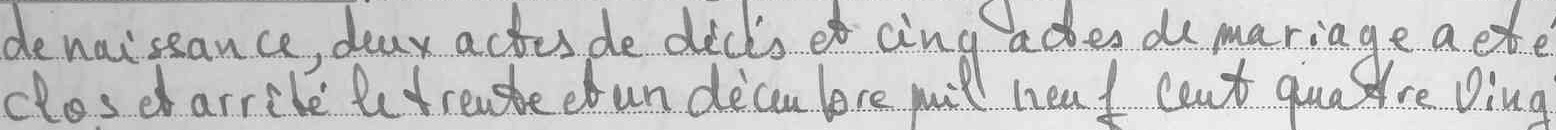 de naissance, deux actes de décès et cinq actes de mariage a été
clos et arrêté le trente et un décembre mil neuf cent quatre ving